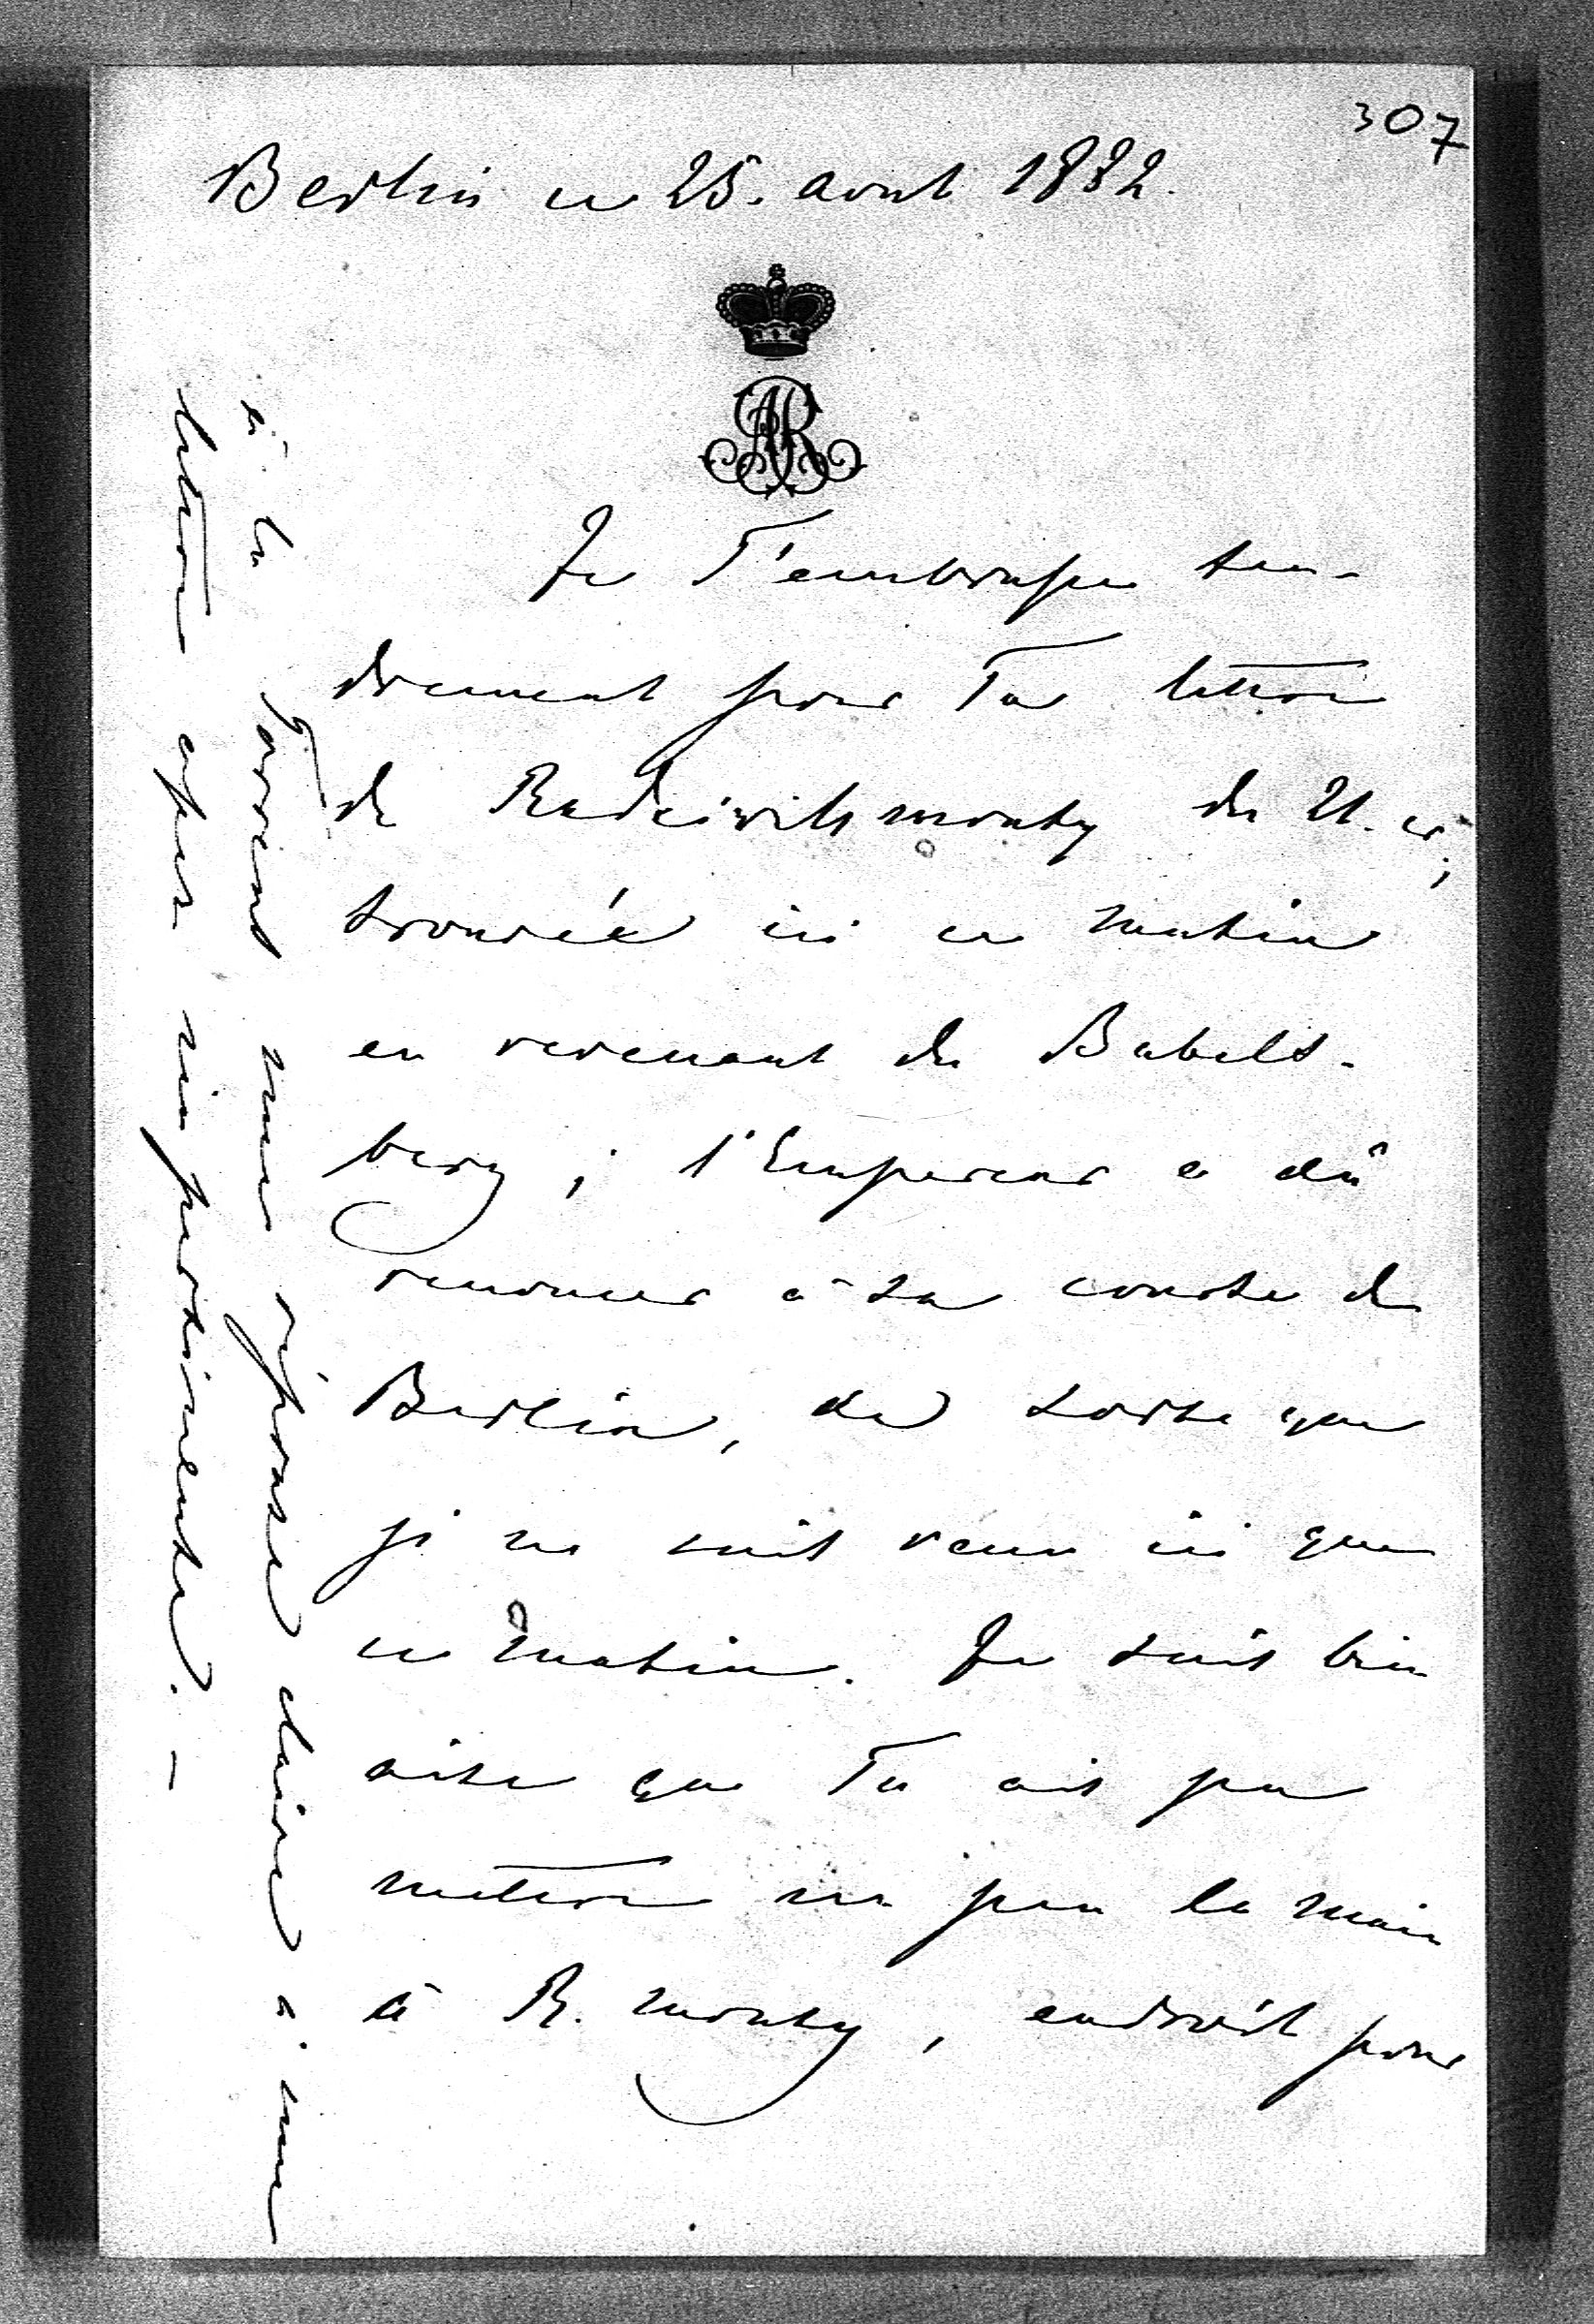 307
Berlin ce 25. aout 1882.
AR
Je T'embrasse ten-
drement pour Ta lettre
de Radziwillmonty du 21. cr;
trouvée ici ce matin
en revenant de Babels-
berg; l'Empereur a dû
renoncer à sa course de
Berlin, de sorte que
je ne suis venu ici que
ce matin. Je suis bien
aise que Tu ais pu
mettre un peu la main
à R. monty, endroit pour
réponse claire à une
lettre assez impertinente. –